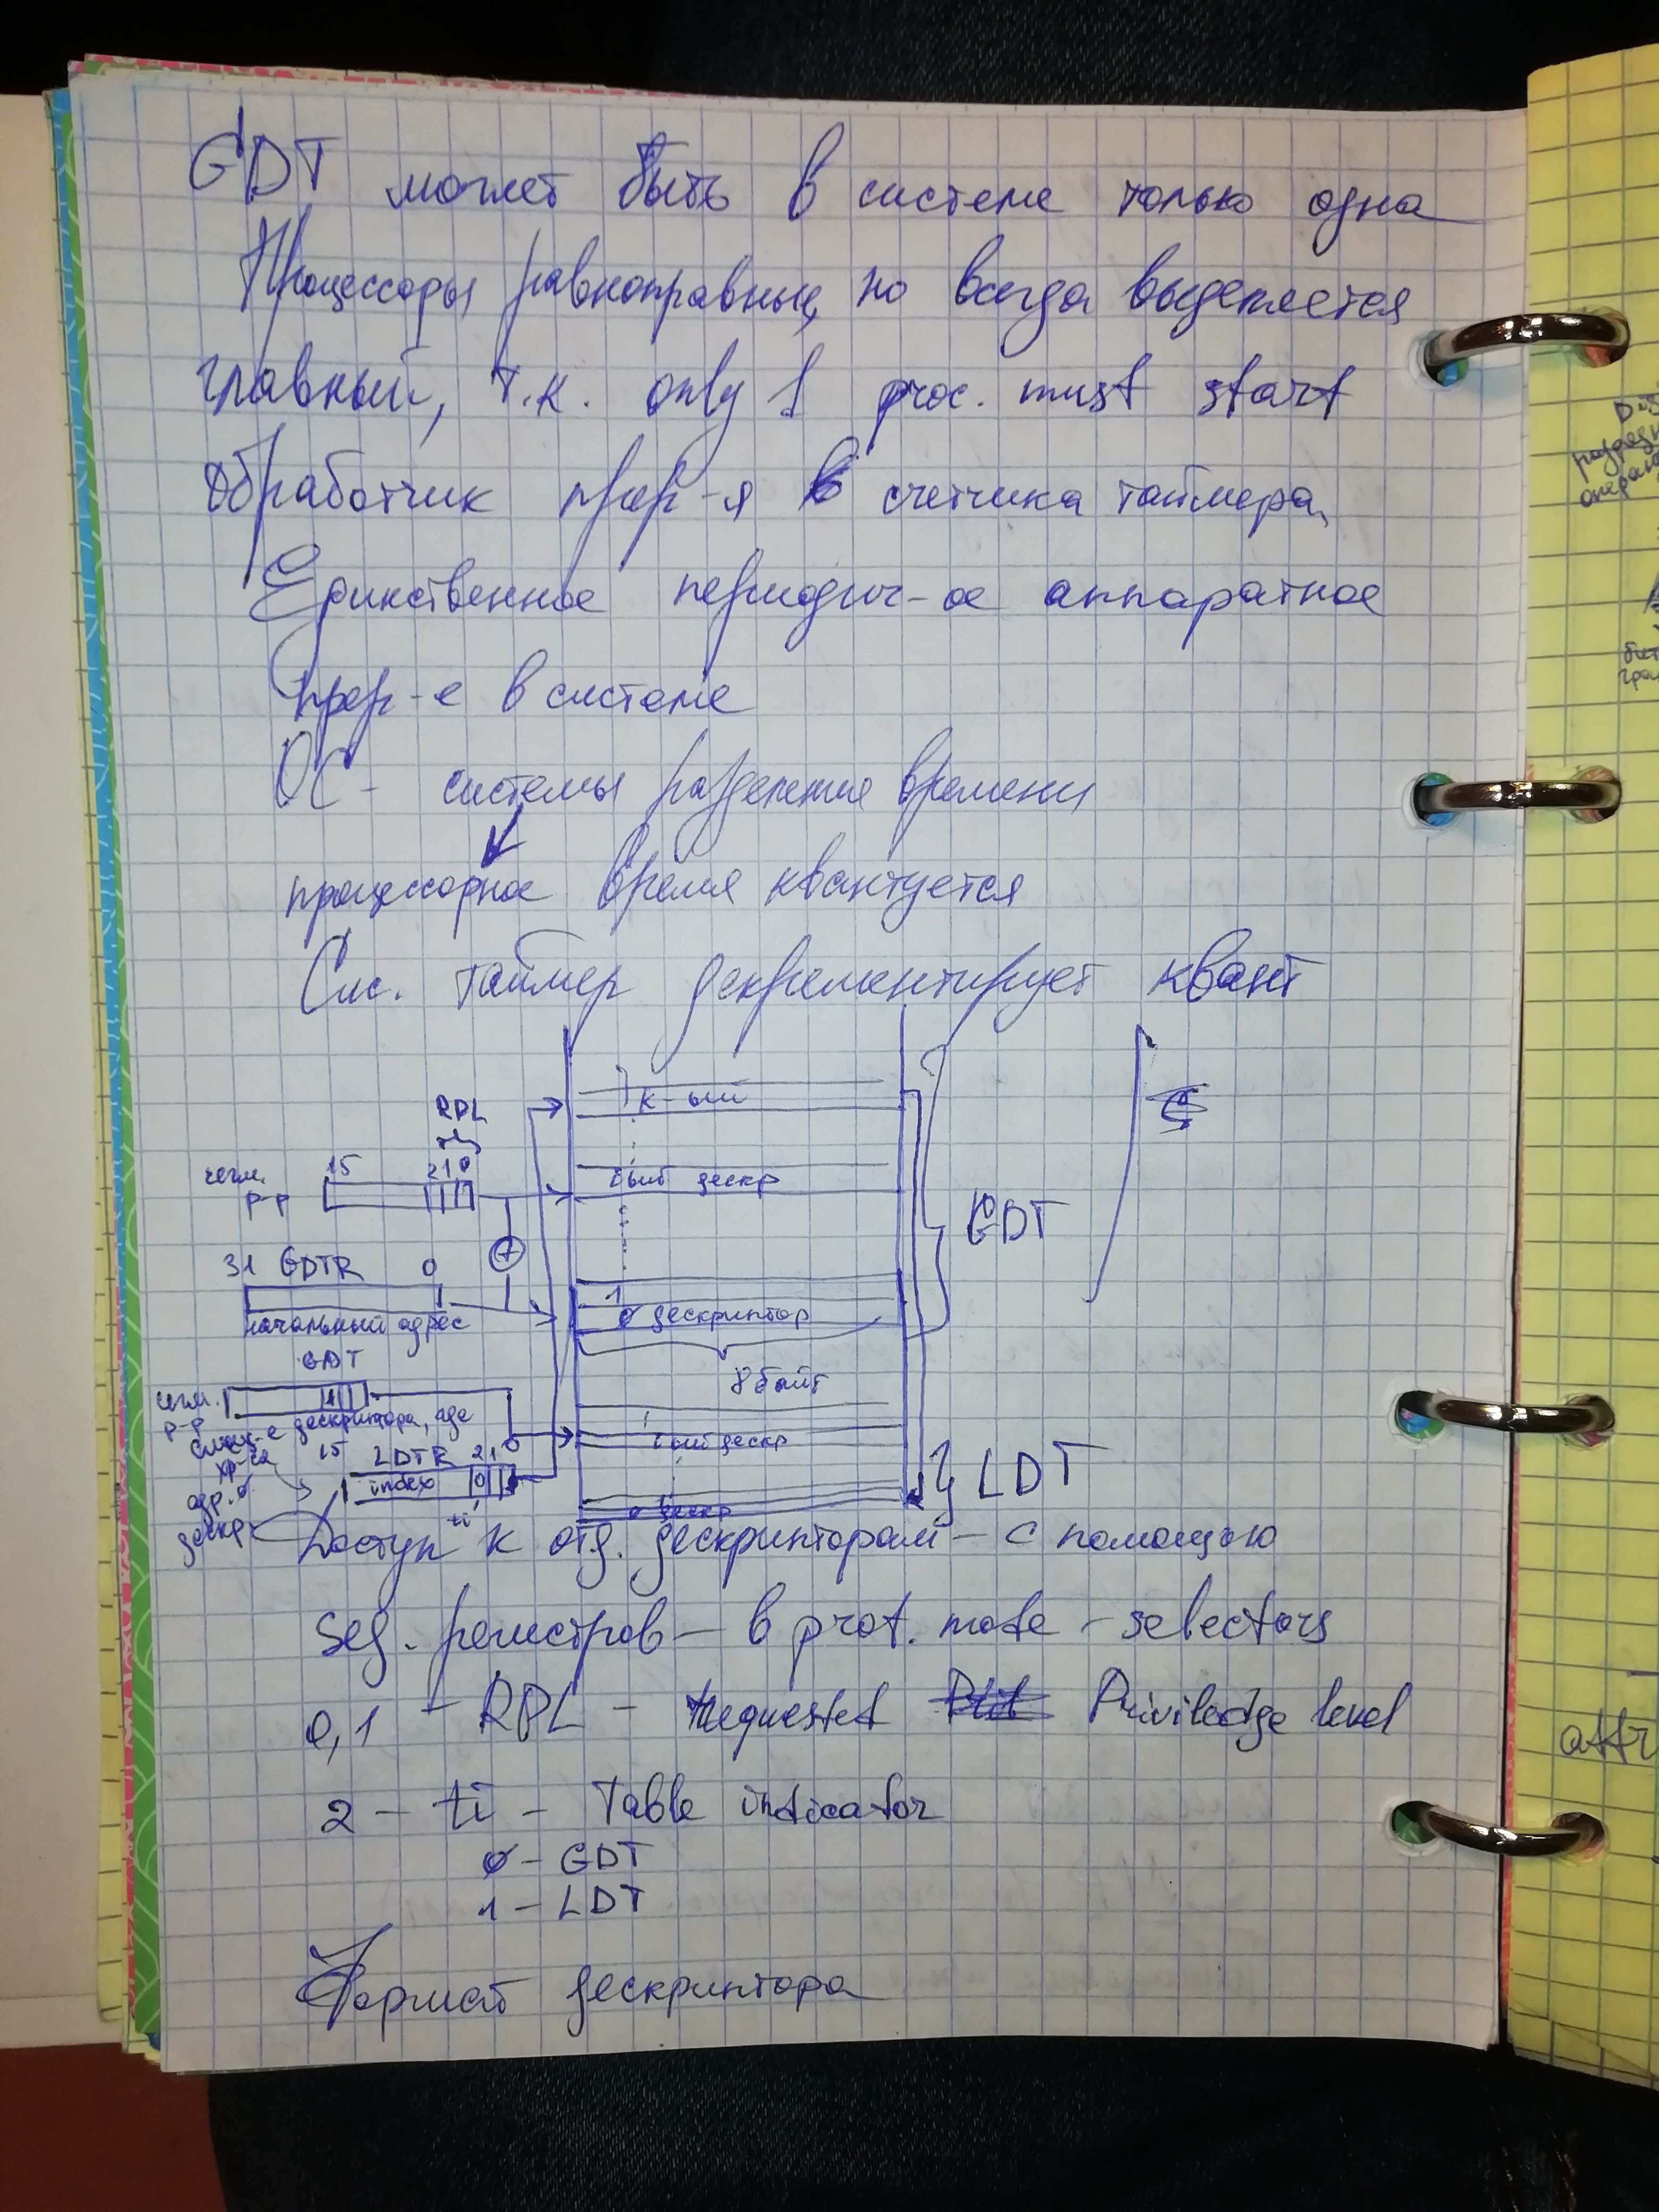 GDT может быть в системе только одна
Процессоры равноправные, но всегда выделяется
главный, т.к. only 1 proc. must start
обработчик прер-я в счетчика таймера.
Единственное периодич-ое аппаратное
прер-е в системе
ОС - системы разделения времени
процессорное время квантуется
Сис. таймер декрементирует квант
к-ый
RPL
сегм. 15 2 1 0
р-р
дескр
GDT
31 GDTR 0
1
0 дескриптор
начальный адрес
GDT
8 байт
сегм.
р-р
1
дескриптора, где
хр-ся
адр. 0
дескр
15 LDTR 2 1 0
index 0
ti
дескр
0 дескр
LDT
Доступ к отд. дескрипторам - с помощью
seg. регистров - в prot. mode - selectors
0,1 - RPL - Requested Priviledge level
2 - ti - Table indicator
0 - GDT
1 - LDT
Формат дескриптора
attr